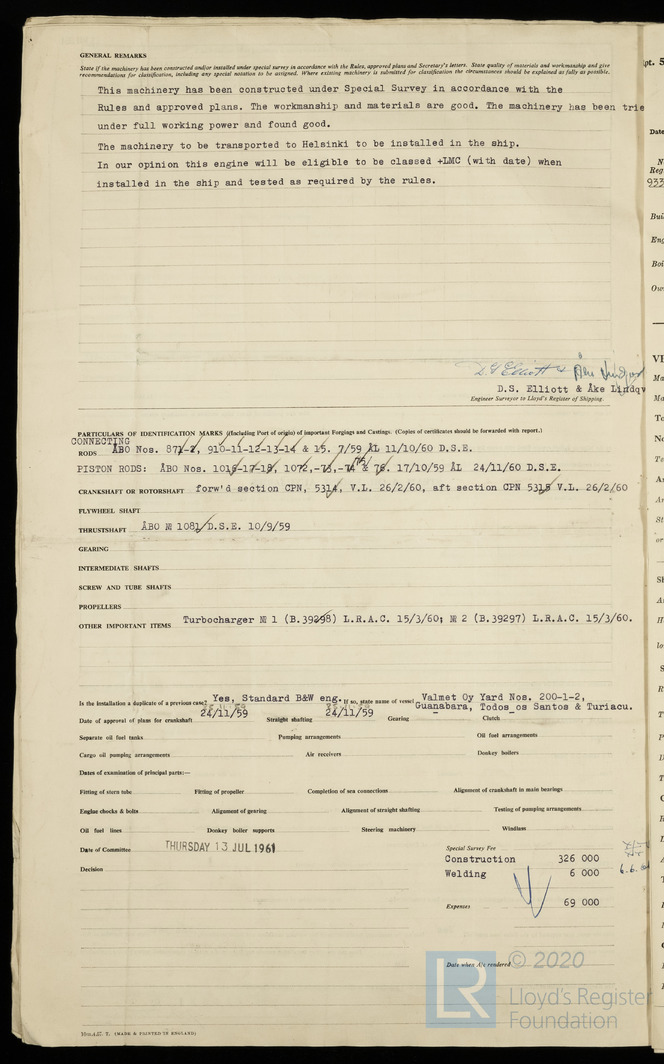 GENERAL REMARKS
State if the machinery has been constructed and/or installed under special survey in accordance with the Rules, approved plans and Secretary's letters. State quality of materials and workmanship and give
recommendations for classification, including any special notation to be assigned. Where existing machinery is submitted for classification the circumstances should be explained as fully as possible.
This machinery has been constructed under Special Survey in accordance with the
Rules and approved plans. The workmanship and materials are good. The machinery has been trie
under full working power and found good.
The machinery to be transported to Helsinki to be installed in the ship.
In our opinion this engine will be eligible to be classed +LMC (with date) when
installed in the ship and tested as required by the rules.
D.S. Elliott & Åke Lindqv
Engineer Surveyor to Lloyd's Register of Shipping.
PARTICULARS OF IDENTIFICATION MARKS (Including Port of origin) of important Forgings and Castings. (Copies of certificates should be forwarded with report.)
CONNECTING
RODS ÅBO Nos. 871-2, 910-11-12-13-14 & 15. 7/59 ÅL 11/10/60 D.S.E.
PISTON RODS: ÅBO Nos. 1016-17-18, 1072,-73,-74 & 76. 17/10/59 ÅL 24/11/60 D.S.E.
CRANKSHAFT OR ROTORSHAFT forw'd section CPN, 5314, V.L. 26/2/60, aft section CPN 5315 V.L. 26/2/60
FLYWHEEL SHAFT
THRUSTSHAFT ÅBO № 1081/D.S.E. 10/9/59
GEARING
INTERMEDIATE SHAFTS
SCREW AND TUBE SHAFTS
PROPELLERS
OTHER IMPORTANT ITEMS Turbocharger № 1 (B.39298) L.R.A.C. 15/3/60; № 2 (B.39297) L.R.A.C. 15/3/60.
Is the Installation a duplicate of a previous case? Yes, Standard B&W eng. If so, state name of vessel Valmet Oy Yard Nos. 200-1-2,
Guanabara, Todos os Santos & Turiacu.
Date of approval of plans for crankshaft 24/11/59 Straight shafting 24/11/59 Gearing - Clutch -
Separate oil fuel tanks Pumping arrangements Oil fuel arrangements
Cargo oil pumping arrangements Air receivers Donkey boilers
Dates of examination of principal parts:—
Fitting of stern tube Fitting of propeller Completion of sea connections Alignment of crankshaft in main bearings
Engine chocks & bolts Alignment of gearing Alignment of straight shafting Testing of pumping arrangements
Oil fuel lines Donkey boiler supports Steering machinery Windlass
Date of Committee THURSDAY 13 JUL 1961
Special Survey Fee
Construction 326 000
Decision
Welding 6 000
Expenses 69 000
Date when A/c rendered
© 2020
LR
Lloyd's Register
Foundation
(MADE & PRINTED IN ENGLAND)